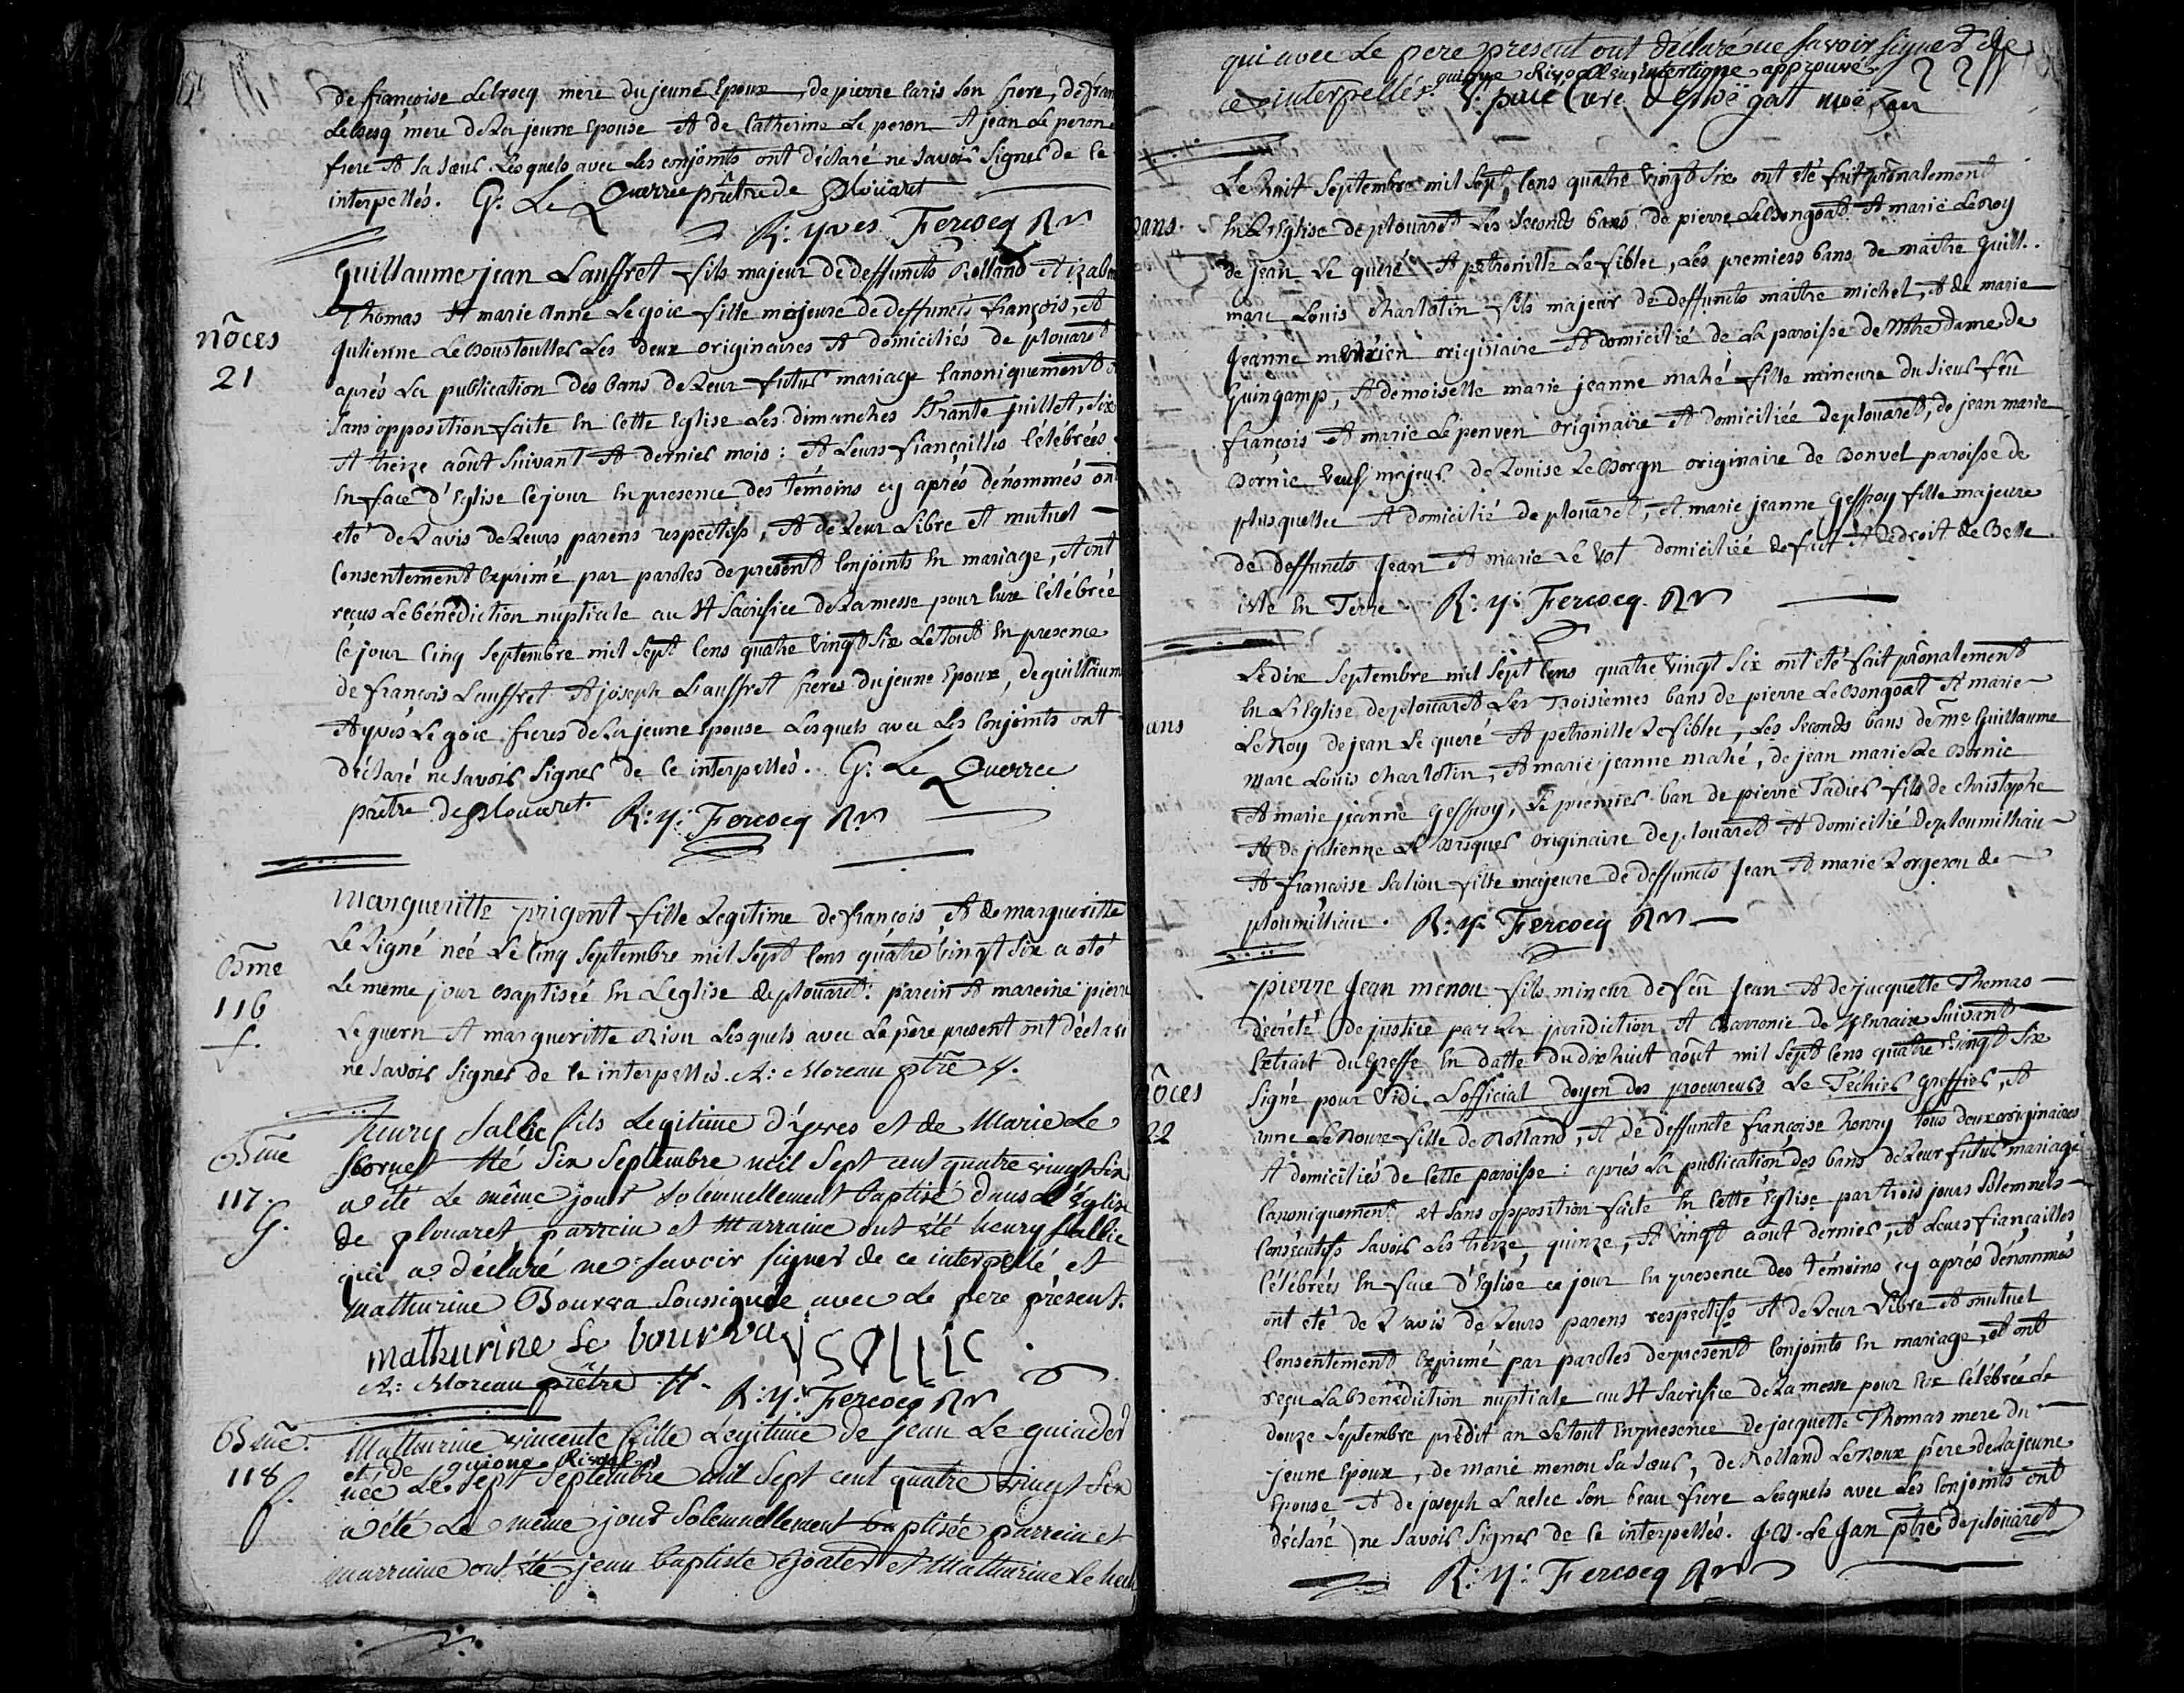 de françoise Lebrocq mere du jeune Epoux, de pierre Caris son frere, de fran
mere de La jeune Epouse Et de Catherine Le peron Et jean Le peron
frere Et sa sœur Lesquels avec Les conjoints ont déclaré ne savoir signer de Ce
interpellés. G: Le Querrec prêtre de plouaret
R: Yves Fercocq Rr
nôces
21
Guillaume jean Lauffret fils majeur de deffuncts Rolland Et izab
Thomas Et marie anne Le goïc fille majeure de deffuncts françois, Et
julienne Les deux originaires Et domiciliés de plouaret
après La publication des bans de Leur futur mariage Canoniquement
sans opposition faite En Cette Eglise Les dimanches trante juillet, six
Et treize août suivant Et dernier mois : Et Leurs fiançailles Célébrées
En face d'Eglise Ce jour En presence des témoins cy après dénommés ont
eté de L'avis de Leurs parens respectifs, Et de Leur Libre Et mutuel
Consentement Exprimé par paroles de present Conjoints En mariage, Et ont
reçus La bénédiction nuptiale au St sacrifice de La messe pour Eux Célébrée
Ce jour Cinq septembre mil sept Cens quatre vingt six Le tout En presence
de françois Lauffret Et joseph Lauffret freres du jeune Epoux, de guillaum
Et yves Le goïc freres de La jeune Epouse Lesquels avec Les Conjoints ont
déclaré ne savoir signer de Ce interpellés. G: Le Querrec
prêtre de plouaret. R: Y: Fercocq Rr
Bme
116
f.
Margueritte prigent fille Legitime de françois Et de margueritte
Le Vigné née Le Cinq septembre mil sept Cens quatre vingt six a eté
Le meme jour Baptisée En L'eglise de plouaret : parein Et mareine pierre
Le guern Et margueritte Riou Lesquels avec Le père present ont déclaré
ne savoir signer de Ce interpellés. A: Moreau ptre
Bme
117.
G.
henry sallic fils Legitime d'yves et de Marie Le
Né six septembre mil sept cent quatre vingt six
a été Le même jour solemnellement baptisé dans L'église
de plouaret parrein et Marraine ont été henry sallic
qui a déclaré ne savoir signer de ce interpellé et
Mathurine Bourva soussignée avec Le pere présent.
mathurine Le bourva YSALLIC
A: Moreau prêtre R: Y: Fercocq Rr
Bme.
118
f.
Mathurine vincente fille Légitime de jean Le quiader
et de guione Rivoal
née Le sept septembre mil sept cent quatre vingt six
a été Le même jour solemnellement baptisée parrein et
marraine ont été jean baptiste et Mathurine Le
qui avec Le pere present ont déclaré ne savoir signer de
guione Rivoall En interligne approuvé
ce interpellés.
Bans
Le huit septembre mil sept Cens quatre vingt six ont eté fait prônalement
En L'Eglise de plouaret Les seconds bans de pierre Le Bongoat Et marie Le Roy
de jean Le queré Et petronille Le fiblec, Les premiers bans de maitre Guill.
marc Louis Charlotin fils majeur de deffuncts maitre michel, Et de marie
jeanne originaire Et domicilié de La paroisse de Notre dame de
Guingamp, Et demoiselle marie jeanne mahé fille mineure du sieur feu
françois Et marie Le penven originaire Et domiciliée de plouaret, de jean marie
Bornic veuf majeur de Louise Le Borgn originaire de Bonvel paroisse de
plusquellec Et domicilié de plouaret, Et marie jeanne Geffroy fille majeure
de deffuncts jean Et marie Le domiciliée de fait Et de droit de Belle
isle En Terre. R: Y: Fercocq. Rr
Bans
Le dix septembre mil sept Cens quatre vingt six ont eté fait prônalement
En L'Eglise de plouaret Les Troisiemes bans de pierre Le Bongoat Et marie
Le Roy de jean Le queré Et petronille Le fiblec, Les seconds bans de me Guillaume
marc Louis charlotin, Et marie jeanne mahé, de jean marie Le Bornic
Et marie jeanne Geffroy, Le premier ban de pierre Tadier fils de christophe
Et de julienne Le originaire de plouaret Et domicilié de ploumilliau
Et françoise Saliou fille majeure de deffuncts jean Et marie Lorgerou de
ploumilliau. R: Y: Fercocq Rr
nôces
22
pierre jean menou fils mineur de feu jean Et de jacquette Thomas
décrété de justice par La juridiction Et Barronie de suivant
L'extrait du Greffe En datte du dix huit août mil sept Cens quatre vingt six
signé pour Vidi L'official doyen des procureurs Le Greffier, Et
anne Le Roux fille de Rolland, Et de deffuncte françoise henry tous deux originaires
Et domiciliés de Cette paroisse : après La publication des bans de Leur futur mariage
Canoniquement et sans opposition faite En Cette Eglise par trois jours solemnels
Consécutifs savoir Les treize, quinze, Et vingt août dernier, Et Leurs fiançailles
Célébrées En face d'Eglise ce jour En presence des témoins cy après dénommés
ont eté de L'avis de Leurs parens respectifs Et de Leur Libre Et mutuel
Consentement Exprimé par paroles de present Conjoints En mariage, et ont
reçu La Bénédiction nuptiale au St sacrifice de La messe pour Eux Célébrée Le
douze septembre prédit an Le tout En presence de jacquette Thomas mere du
jeune Epoux, de marie menou sa sœur, de Rolland Le Roux père de La jeune
Epouse Et de joseph son beau frere Lesquels avec Les Conjoints ont
déclaré ne savoir signer de Ce interpellés. Le jan ptre de plouaret
R: Y: Fercocq Rr